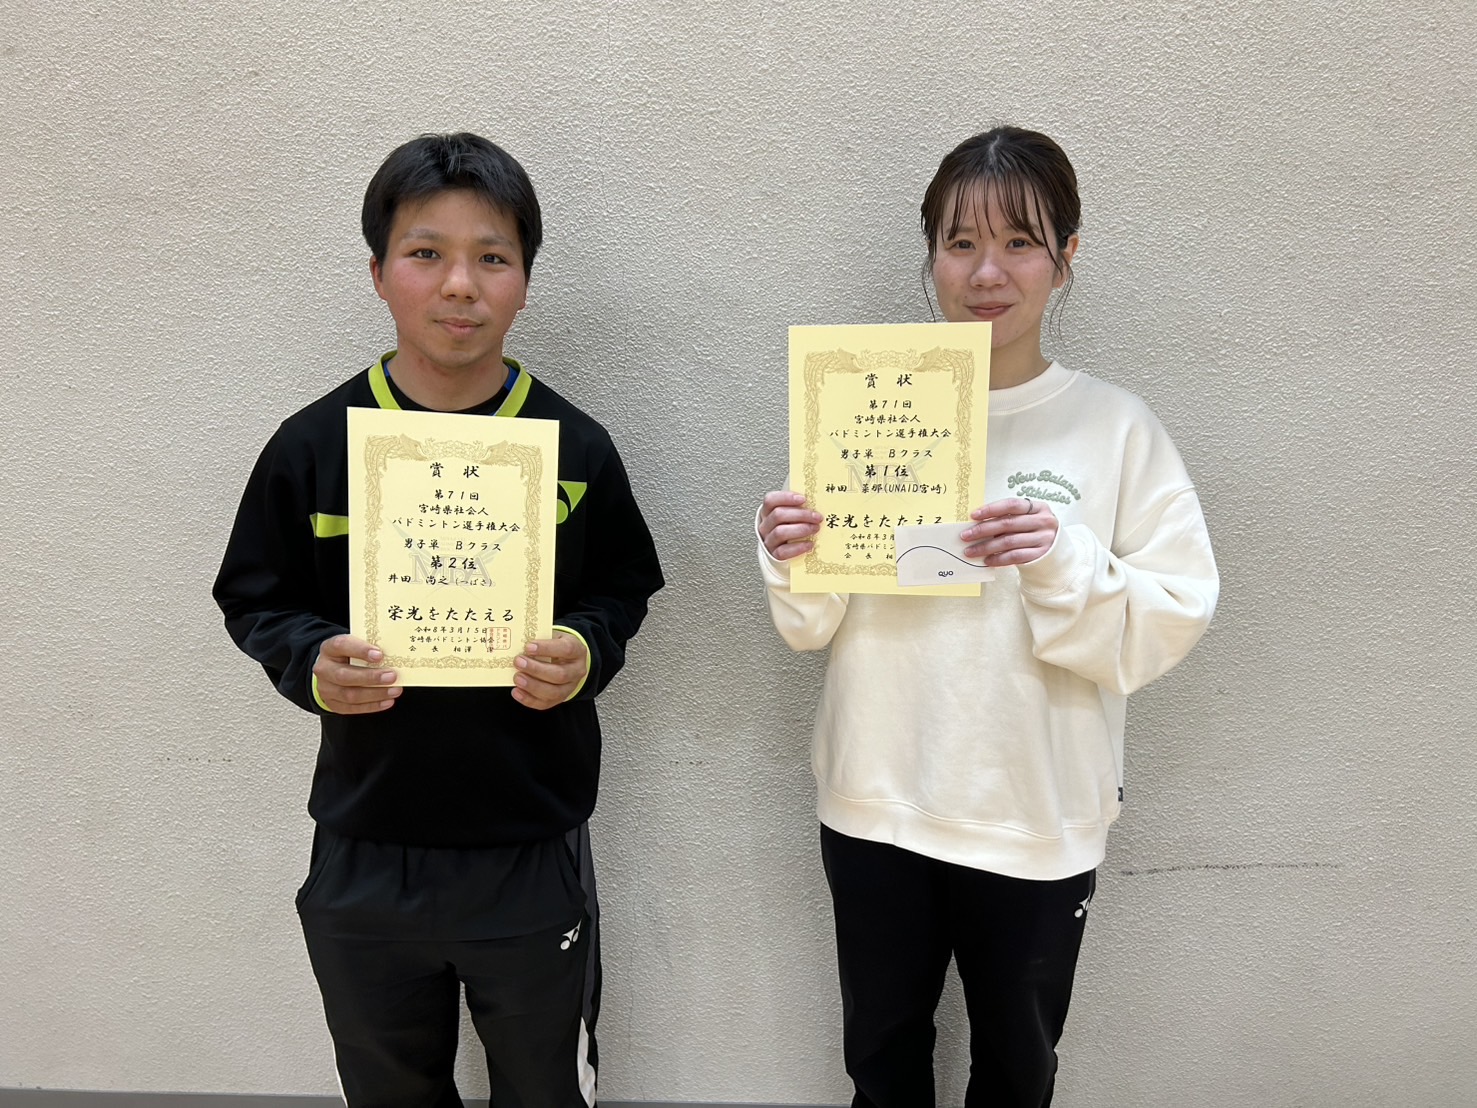 賞状
第71回
宮崎県社会人
バドミントン選手権大会
男子単 Bクラス
第2位
井田 尚之(つばさ)
栄光をたたえる
令和8年3月15日
宮崎県バドミントン協会
会長 相澤 潔
賞状
第71回
宮崎県社会人
バドミントン選手権大会
男子単 Bクラス
第1位
神田 菜那(UNAID宮崎)
栄光をたたえる
令和8年3月
宮崎県バドミン
会長 相
QUO
New Balance
Athletics